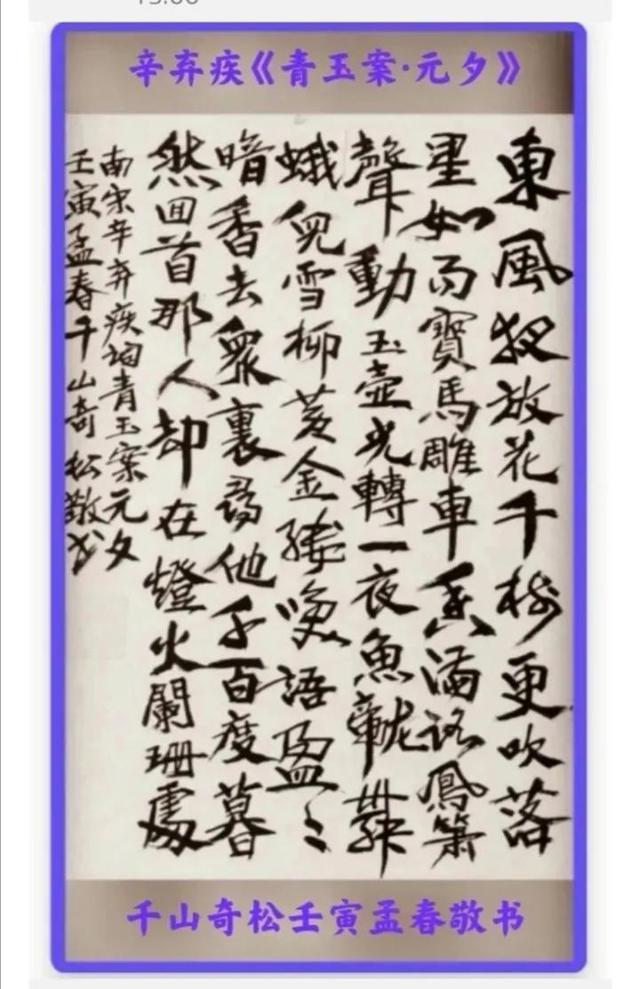 辛弃疾《青玉案·元夕》
東風夜放花千樹更吹落
星如雨寶馬雕車香滿路鳳簫
聲動玉壺光轉一夜魚龍舞
蛾兒雪柳黃金縷咲語盈〻
暗香去衆裏尋他千百度暮
然回首那人却在燈火闌珊處
南宋辛弃疾词青玉案元夕
壬寅孟春千山奇松敬书
千山奇松壬寅孟春敬书